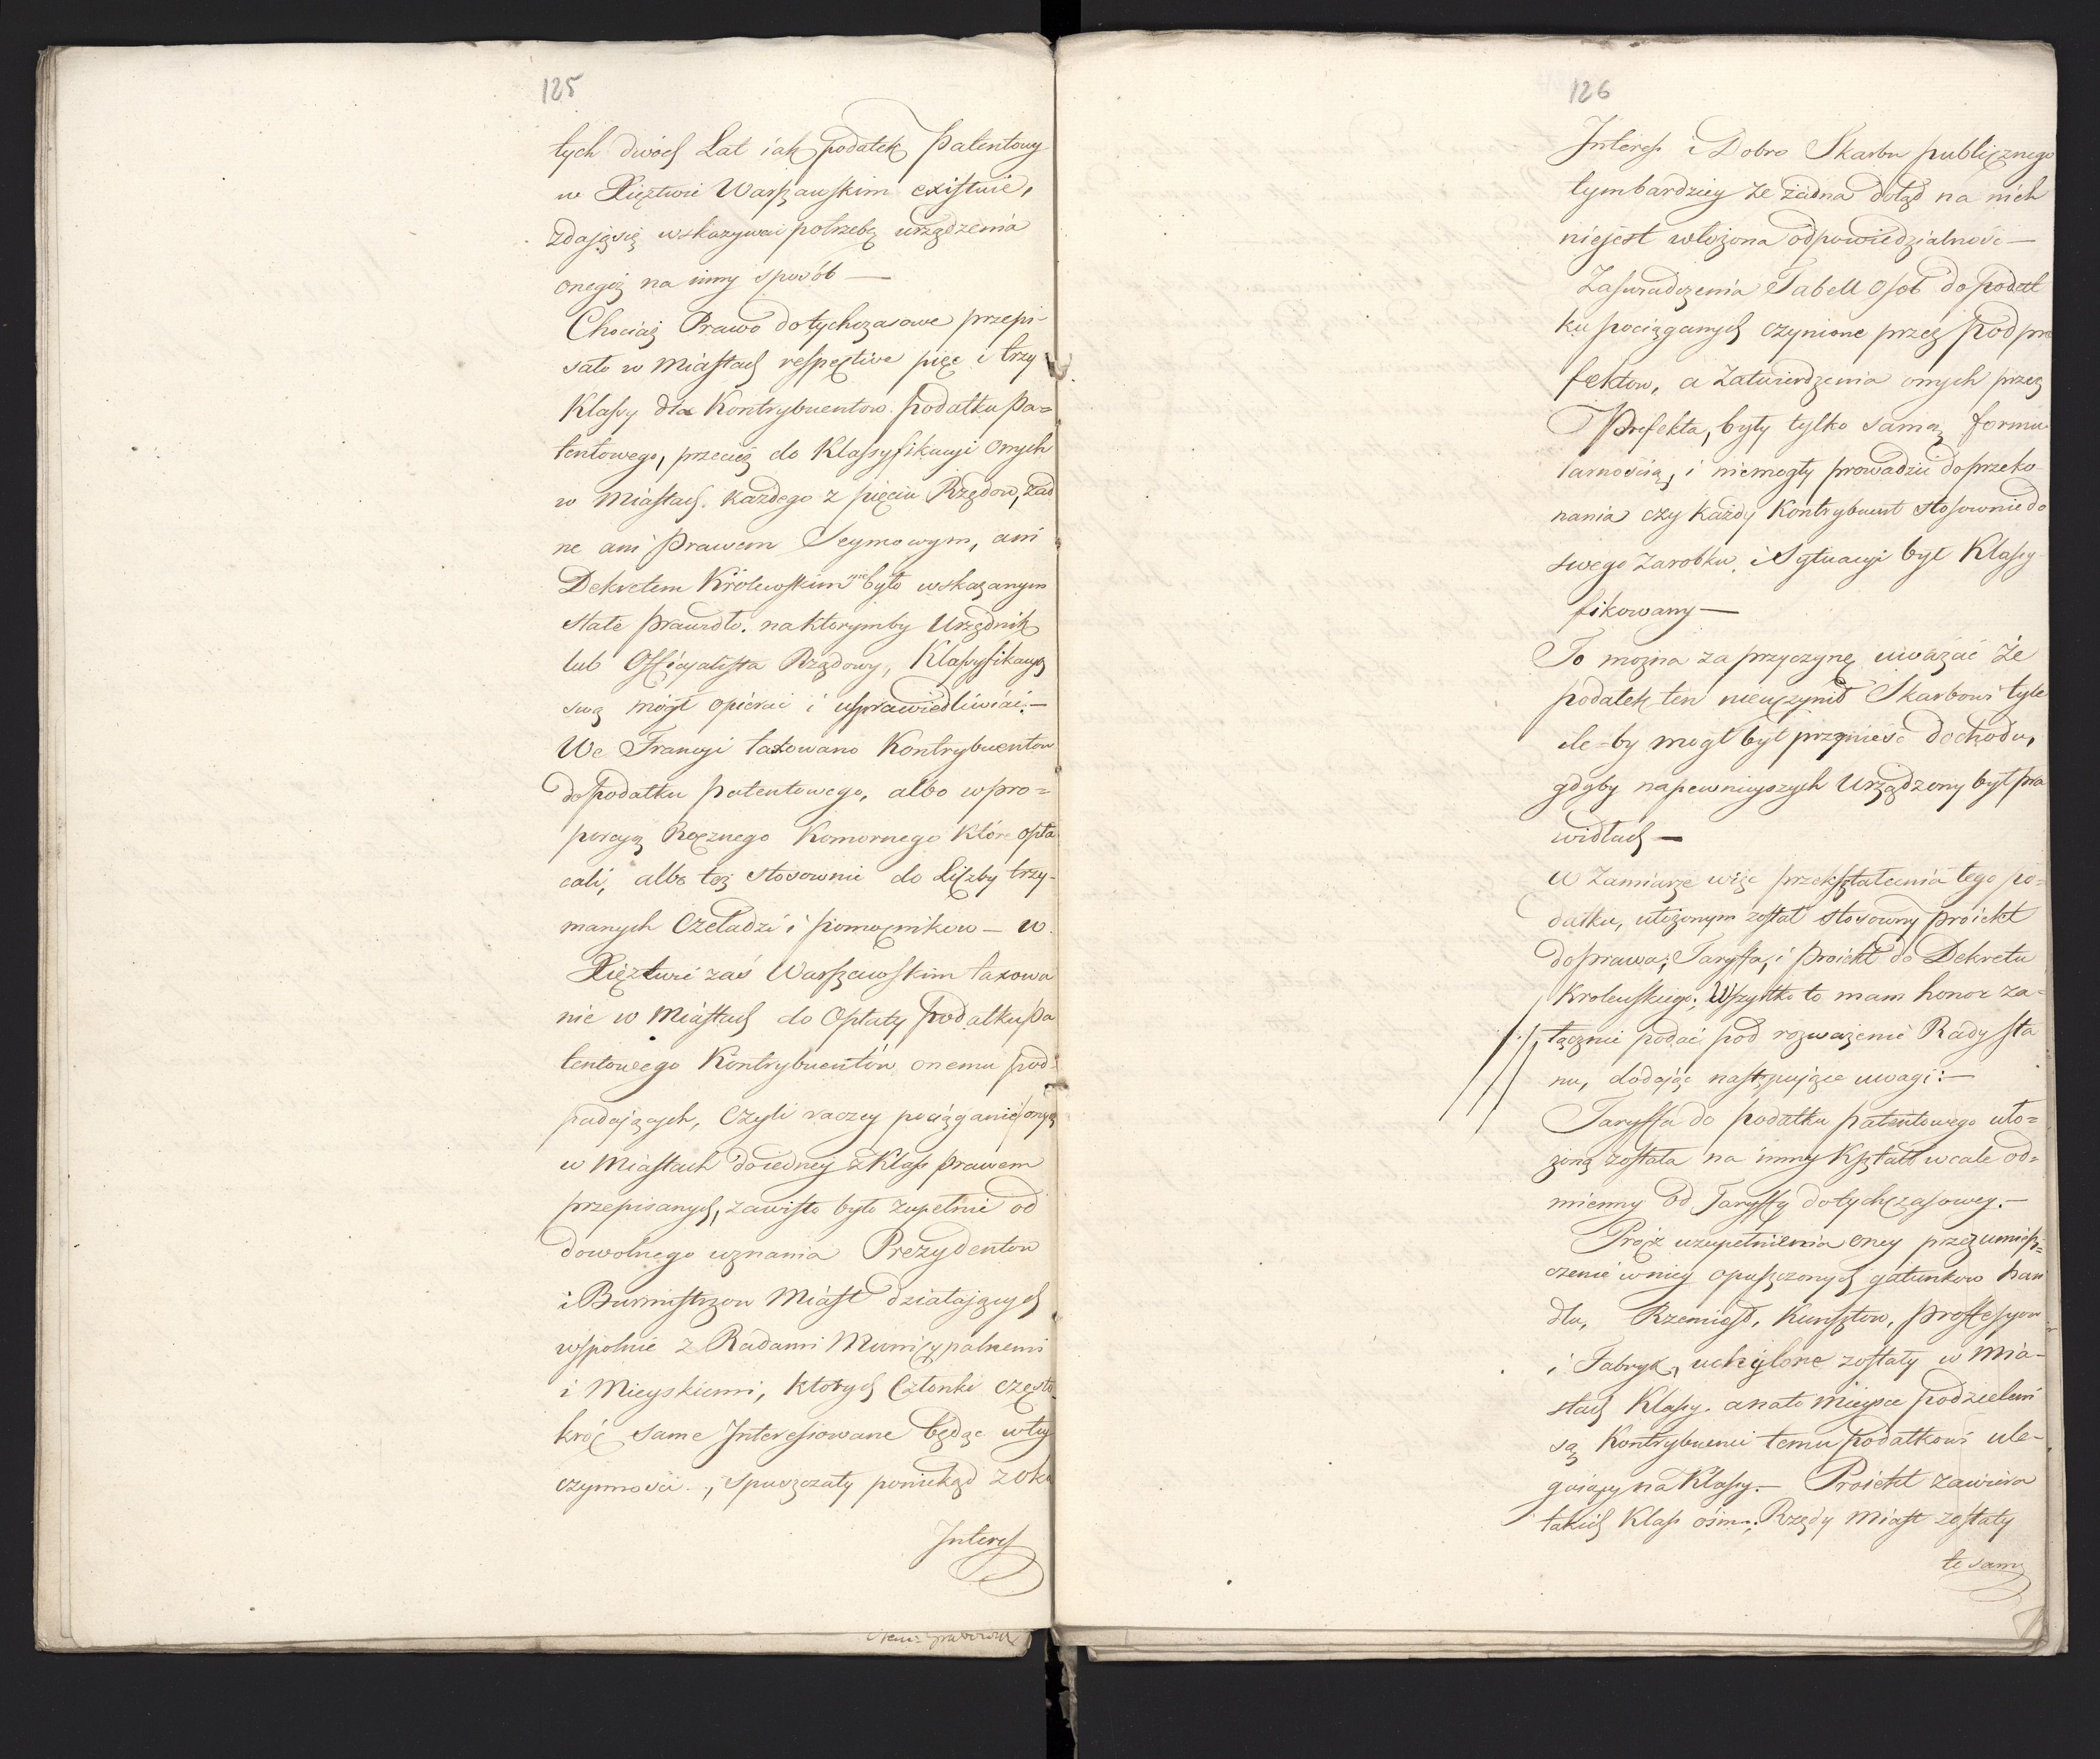 125
tych dwóch Lat iak podatek Patentowy
w Xięztwie Warszawskim existuie,
zdają się wskazywać potrzebę urządzenia
onegoż na inny sposób —
Chociaż Prawo dotychczasowe przepi-
sało w Miastach respective pięć i trzy
Klassy dla Kontrybuentow podatku Pa=
tentowego, przecież do Klassyfikacyi Onych
w Miastach każdego z pięciu Rzędow, żad
ne ani Prawem Seymowym, ani
Dekretem Królewskim nie było wskazanym
stałe prawidło, na którymby Urzędnik
lub Officyalista Rządowy, Klassyfikacyą
swą mógł opierać i usprawiedliwiać. —
We Francyi taxowano Kontrybuentow
do podatku patentowego, albo w pro=
porcyą Rocznego Komornego które opła
cali, albo też stosownie do Liczby trzy-
manych Czeladzi i pomocnikow — w
Xięztwie zaś Warszawskim taxowa
nie w Miastach do Opłaty podatku Pa
tentowego Kontrybuentów onemu pod-
padających, Czyli raczey pociąganie onych
w Miastach do iedney z Klass prawem
przepisanych, zawisło było zupełnie od
dowolnego uznania Prezydentow
i Burmistrzow Miast działających
wspolnie z Radami Municypalnemi
i Mieyskiemi, ktorych Członki często
kroć same Interessowane będąc w tey
czynności, spuszczały poniekąd z oka
Interes
126
Interes i Dobro Skarbu publicznego
tymbardziey że żadna dotąd na nich
niejest włożona odpowiedzialność —
Zaświadczenia Tabell Osob do podat
ku pociąganych czynione przez Podpre
fektow, a Zatwierdzenia onych przez
Prefekta, były tylko samą formu
larnością, i niemogły prowadzić do przeko
nania czy każdy Kontrybuent stosownie do
swego Zarobku i Sytuacyi był Klassy
fikowany —
To można za przyczynę uważać że
podatek ten nieuczynił Skarbowi tyle
ile-by mogł był przynieść dochodu,
gdyby na pewnieyszych Urządzony był pra
widłach —
W Zamiarze więc przekształcenia tego po=
datku, ułożonym został stosowny proiekt
do prawa, Taryffa, i proiekt do Dekretu
Krolewskiego; Wszystko to mam honor za=
łącznie podać pod rozważenie Rady Sta
nu, dodając następujące uwagi: —
Taryffa do podatku patentowego uło=
żoną została na inny Kształt wcale od=
mienny od Taryffy dotychczasowey. —
Prócz uzupełnienia oney przez umiesz=
czenie w niey opuszczonych gatunkow han
dlu, Rzemiosł, Kunsztow, professyow
i Fabryk, uchylone zostały w Mia-
stach Klassy, a nato mieysce podzieleni
są Kontrybuenci temu podatkowi ule-
gaiący na Klassy. — Proiekt zawiera
takich Klass ośm; Rzędy Miast zostały
te same